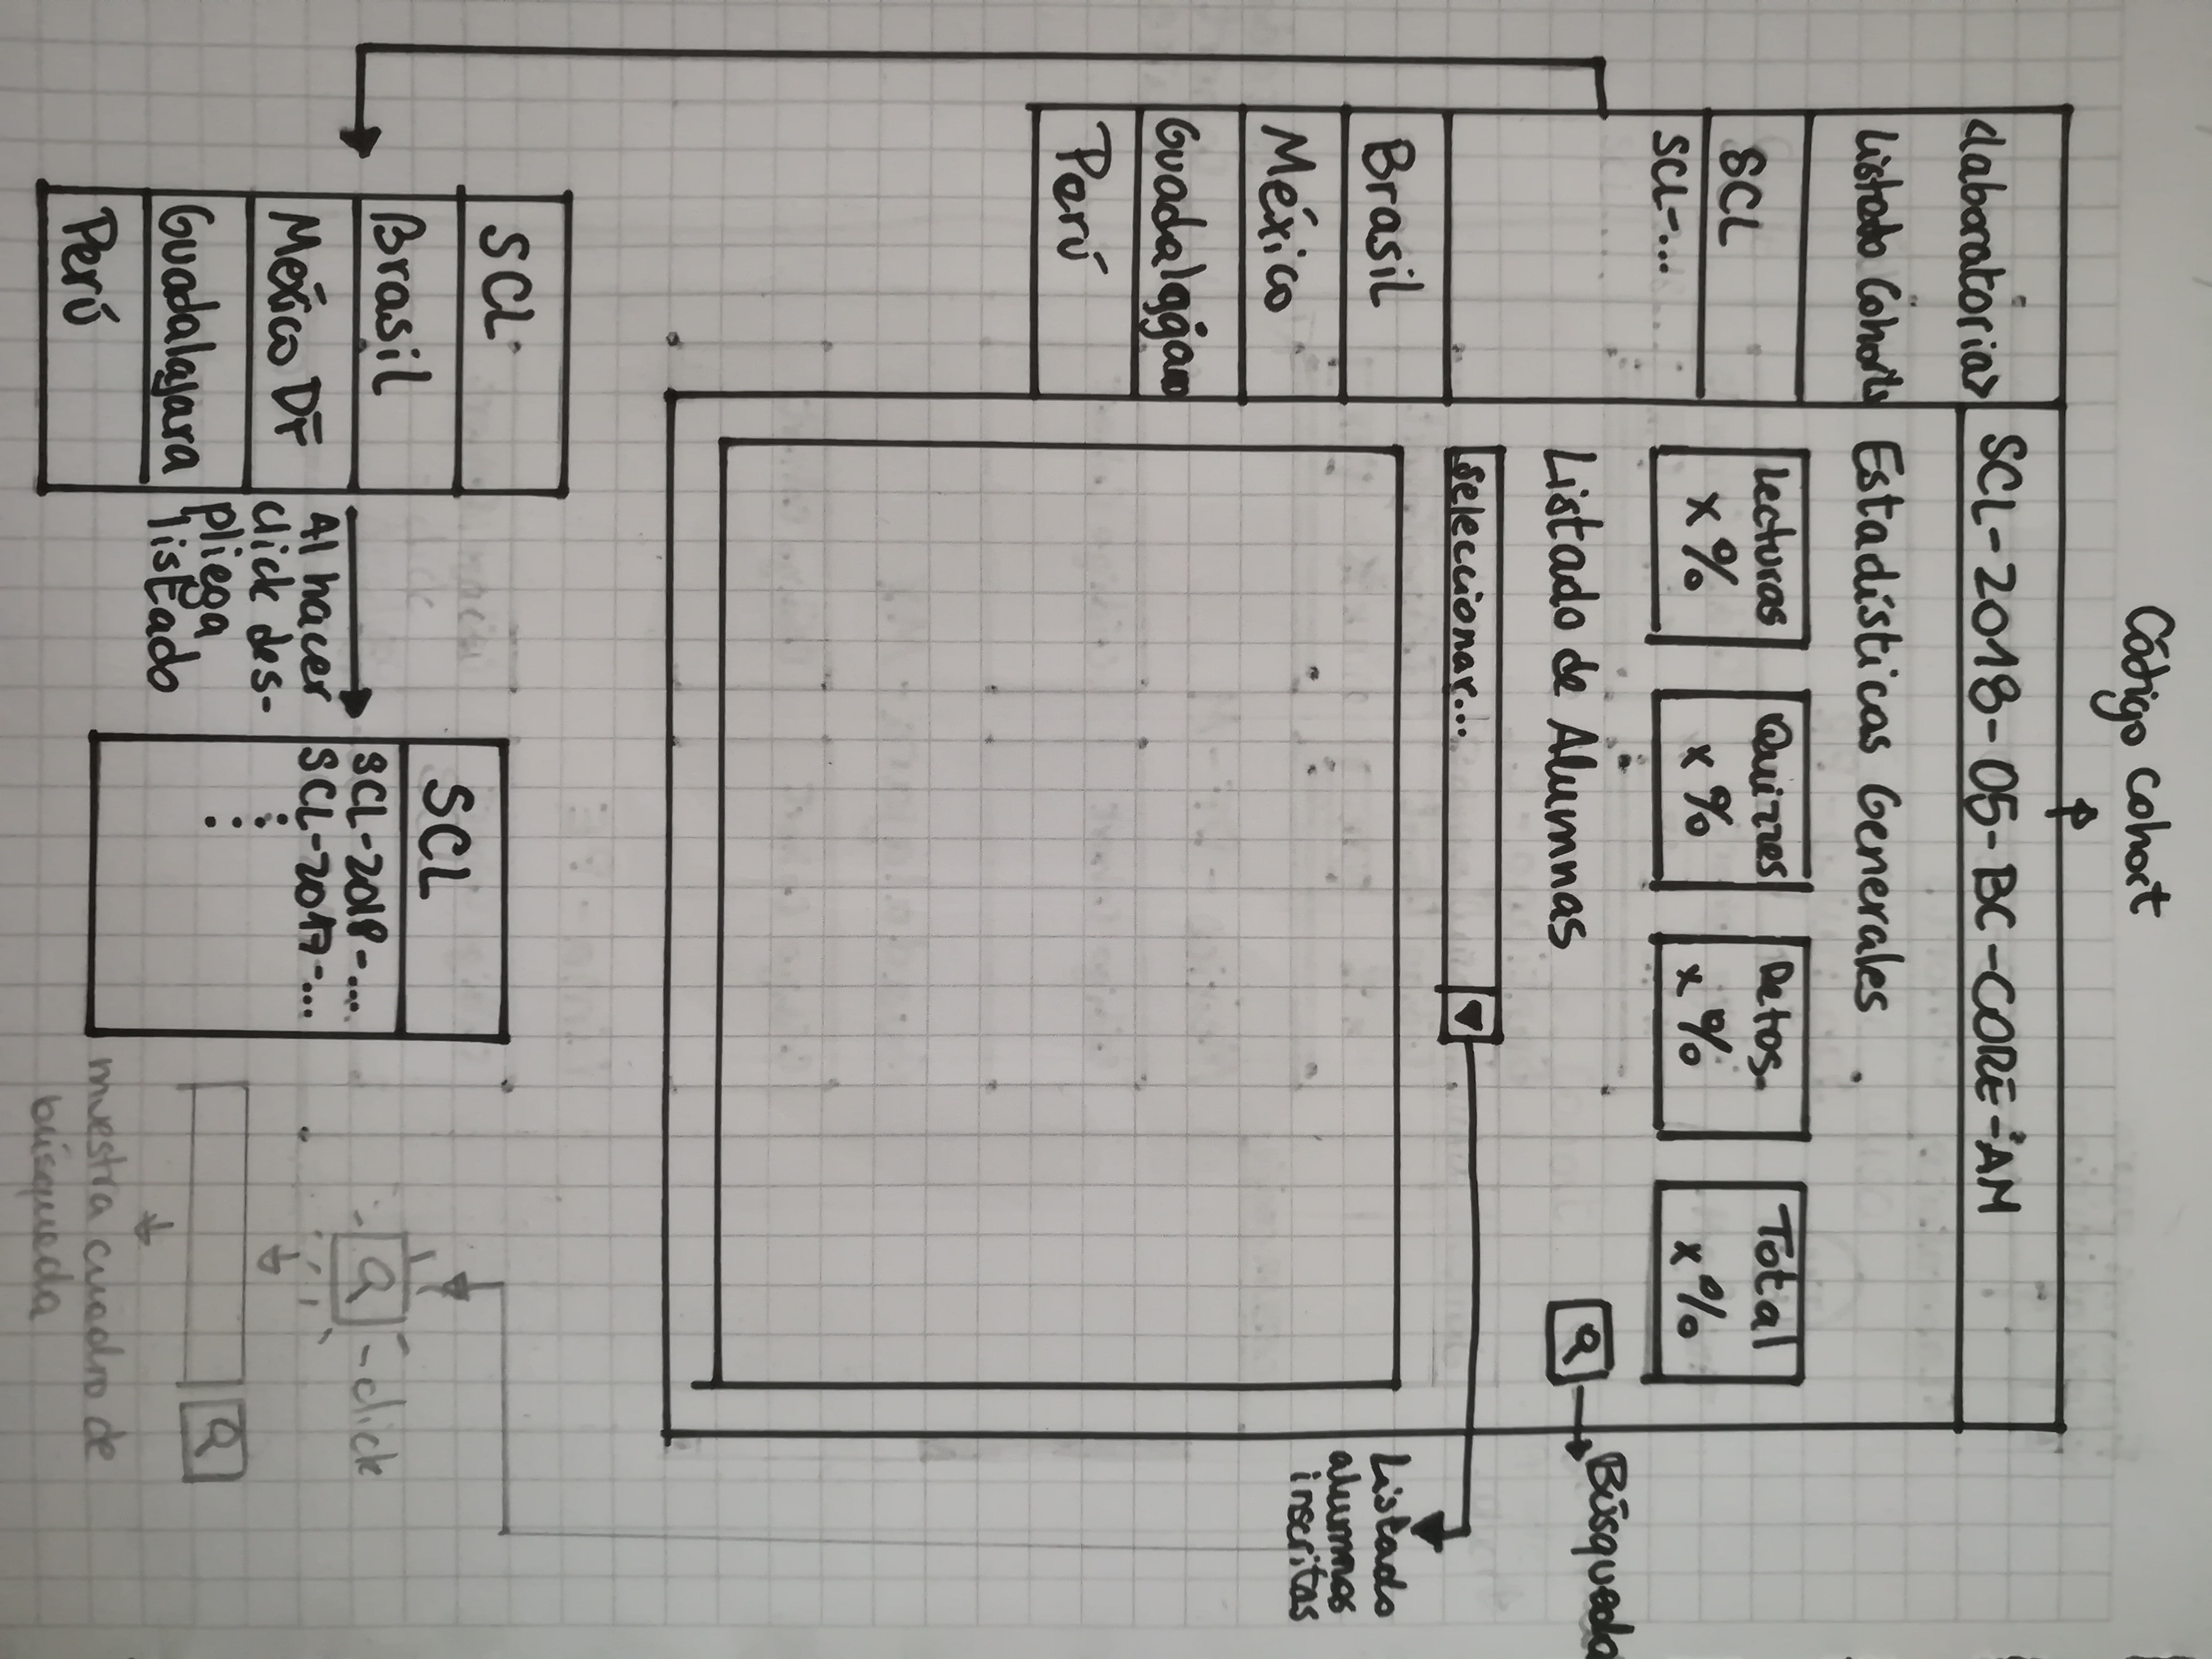 Código cohort
<laboratoria>
Listado Cohorts
SCL
SCL-...
Brasil
México
Guadalajara
Perú
SCL-2018-05-BC-CORE-AM
Estadísticas Generales
Lecturas
x %
Quizzes
x %
Retos
x %
Total
x %
Listado de Alumnas
Búsqueda
Seleccionar...
Listado
alumnas
inscritas
SCL
Brasil
México DF
Guadalajara
Perú
Al hacer
click des-
pliega
listado
SCL
SCL-2018-...
SCL-2017-...
-click
muestra cuadro de
búsqueda